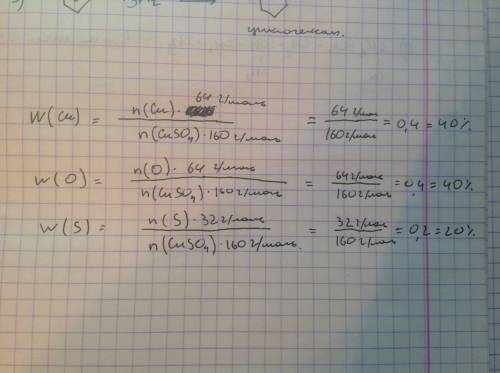 циклогексан.
W(Cu) = n(Cu) · 64 г/моль / n(CuSO4) · 160 г/моль = 64 г/моль / 160 г/моль = 0,4 = 40%.
W(O) = n(O) · 64 г/моль / n(CuSO4) · 160 г/моль = 64 г/моль / 160 г/моль = 0,4 = 40%
W(S) = n(S) · 32 г/моль / n(CuSO4) · 160 г/моль. = 32 г/моль / 160 г/моль = 0,2 = 20%